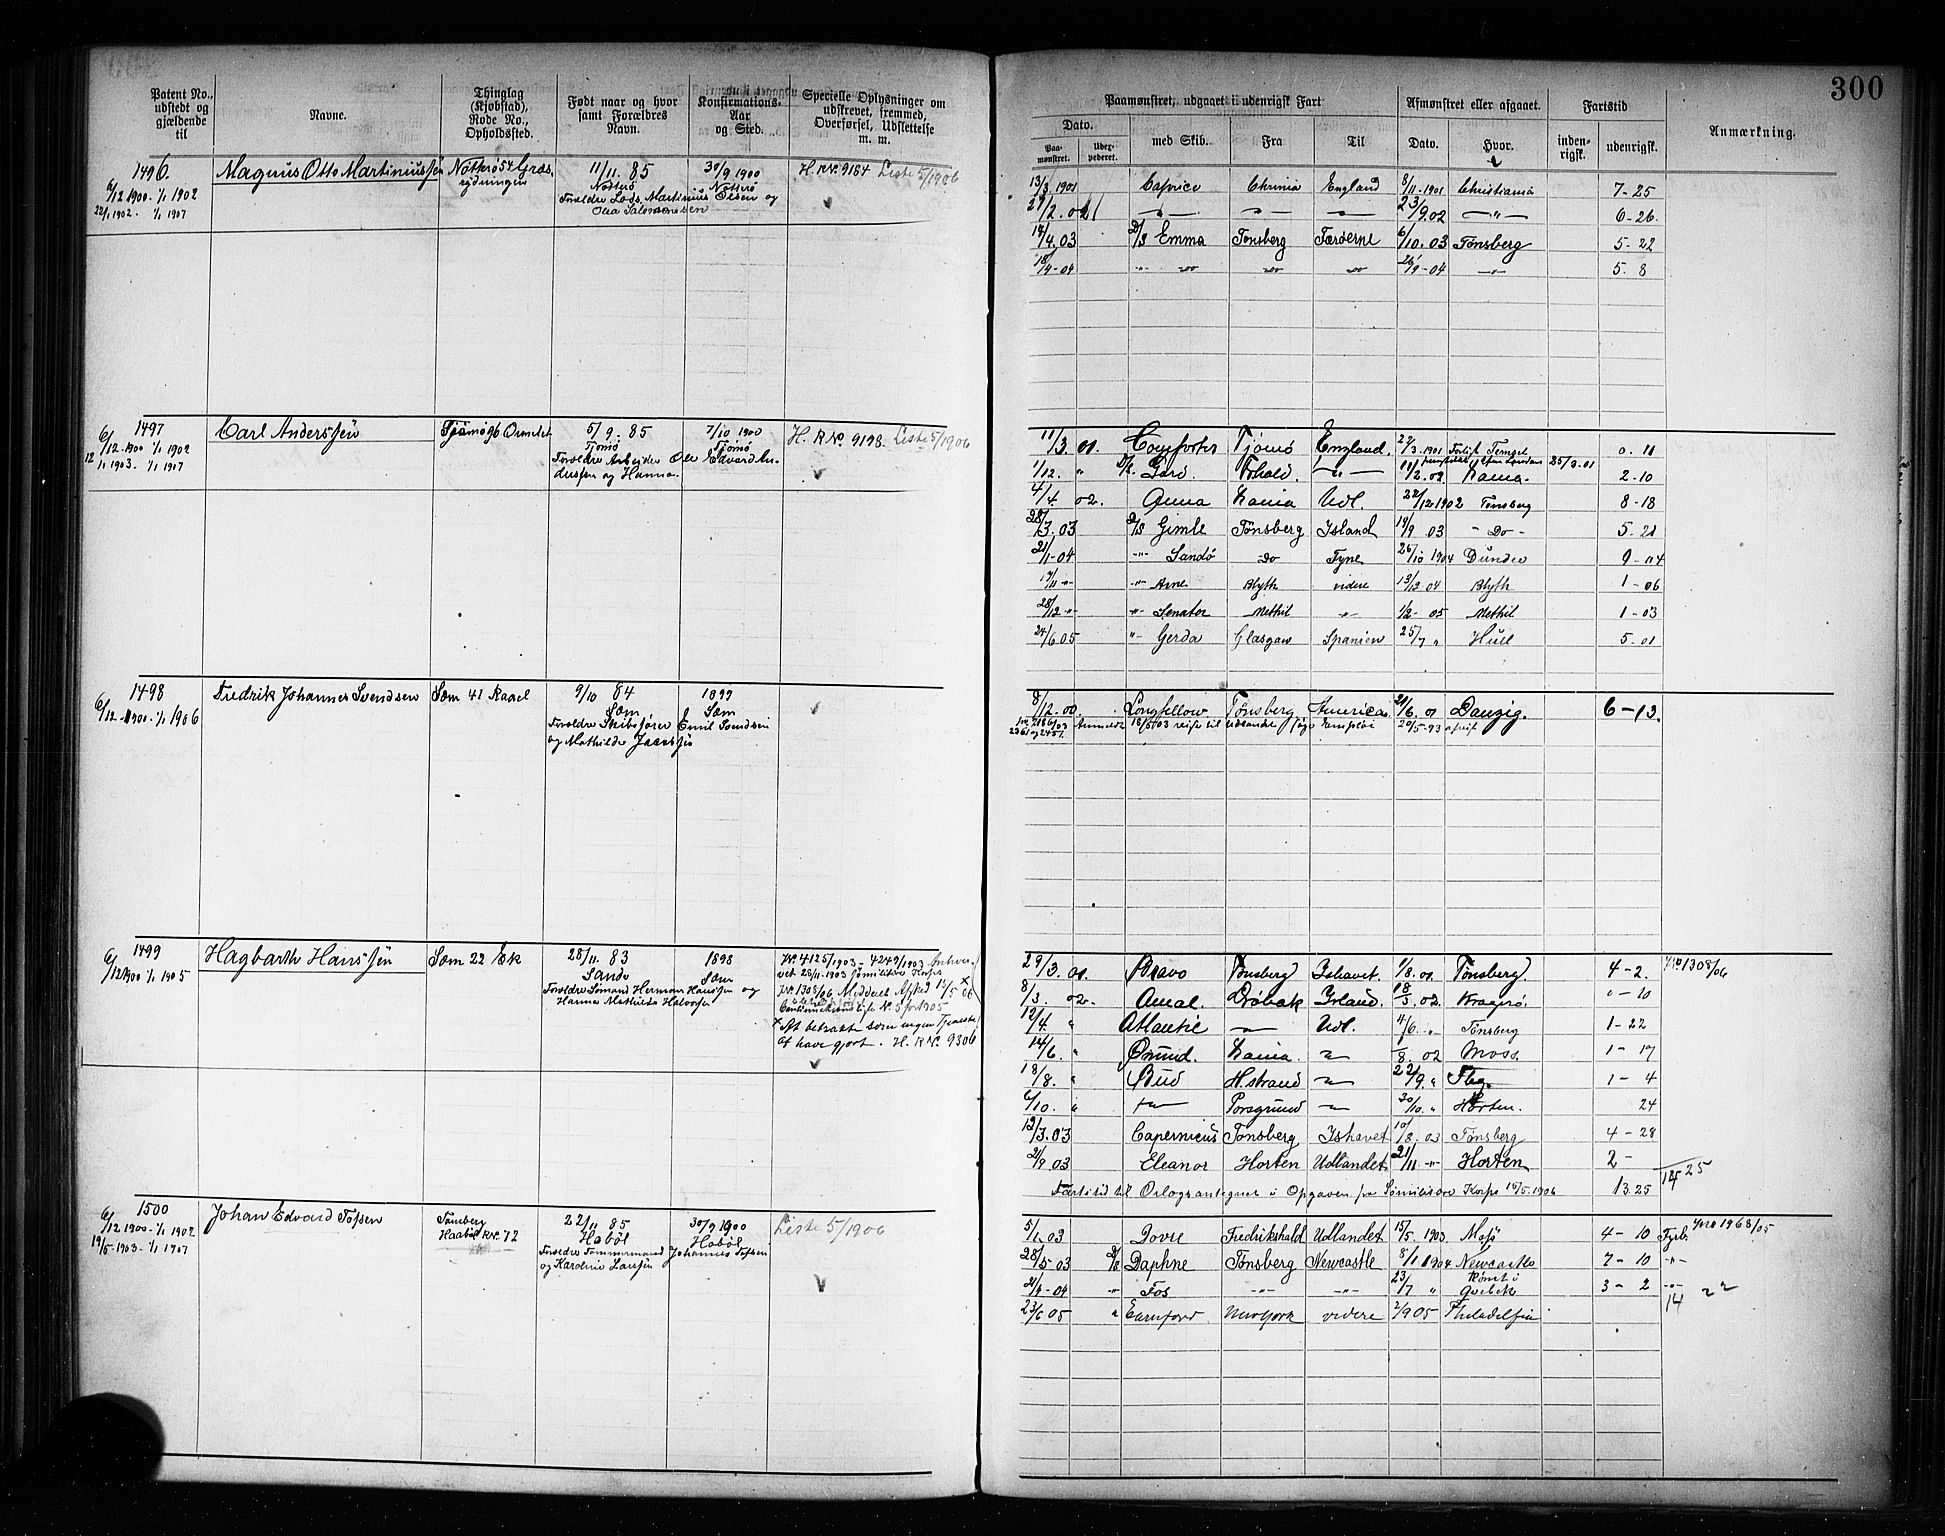 300
Patent No., udstedt og gjældende til
Navne.
Thinglag (Kjøbstad), Rode No., Opholdssted.
Født naar og hvor samt Forældres Navn.
Konfirmations- Aar og Sted.
Specielle Oplysninger om udskrevet, fremmed, Overførsel, Udslettelse m. m.
Paamønstret, udgaaet i udenrigsk Fart
Afmønstret eller afgaaet.
Fartstid
Anmærkning.
Dato.
Paa- mønstret.
med Skib.
Fra
Til
Dato.
Hvor.
inden- rigsk.
udenrigsk.
1496.
6/12 1900 - 1/1 1902
22/1 1902 - 1/1 1907
Magnus Otto Martiniussen
Nøtterø 54
11/11. 85
Nøtterø
Forældre Lods Martinius Olsen og
Olea Salomonsen
30/9 1900
Nøtterø
H. R No. 9184 Liste 5/1906
13/3 1901 Caprice Chrnia England 8/11-1901 Christiania 7-25
23/9.02 6-26
14/4.03 D/S Emma Tønsberg Færøerne 6/10.03 Tønsberg 5-22
18/4-04 26/9-04 5. 8
1497
6/12-1900 1/1 1902
12/1 1903 - 1/1 1907
Carl Anderssen
Tjømø 96 Ormelet
5/9. 85
Tjømø
Forældre Arbeider Ole Edvard An-
derssen og Hanna
7/10 1900
Tjømø
H. R No. 9198. Liste 5/1906
11/3. 01. Tjømø England. 0. 11
1/12. " 11/2.02 2-10
4/4. 02. Anna Udl. 22/12 1902 Tønsberg 8-18
28/3.03 D/S Gimle Tønsberg Island 19/9 03 - Do - 5-21
21/1-04 Sandø Do Tyne 26/10 1904 Dundee 9-04
Arne Blyth videre 13/12 04 Blyth 1-06
28/12 Senator Methil 1/2- 05 Methil 1-03
24/6.05 Gerda Glasgow Spanien 25/7 " Hull 5-01
1498
6/12-1900 - 1/1 1906
Fredrik Johannes Svendsen
Sem 41 Raael
9/10 84
Sem
Forældre Skibsfører Emil Svendsen
og Mathilde
1899
Sem
8/12-00. Longfellow Tønsberg America 21/6. 01 Danzig. 6-13.
1499
6/12 1900 1/1 1905
Hagbarth Hanssen
Sem 22 Æk
28/11. 83
Sande
Forældre Sømand Herman Hanssen og
Hanna Mathilde Halvorsen
1898
Sem
No. 4125/1903 - 4249/1903
28/11-1903 Sømilitære Korps
No. 1308/06 Meddeelt Afsked 12/5 06
No. 5 for 1905
At betragte som ingen Tjeneste
at have gjort. H. R No. 9306
29/3. 01 Bravo Tønsberg Ishavet. 1/8. 01. Tønsberg. 4-2. No 1308/06
8/3. 02. Amal. Drøbak Irland. 18/5.02. Kragerø. "-10
12/4 " Atlantic Udl. 4/6. " Tønsberg 1-22
14/6. " 8. 02 Moss. 1-17
18/8. " Bud H.strand 22/9. " 1-4
6/10. " Porsgrund 30/10. " Horten. 24
12/3.03 Copernicus Tønsberg Ishavet 10/8. 03 Tønsberg 4-28
2/9 03 Eleanor Horten Udlandet. 21/11 Horten 2-
14 25
Fartstid til Orlogs i Opgaven fra Sømilitære Korps 15/5. 1906 13.25
1500
6/12 1900 - 1/1 1902
19/5-1903 - 1/1 1907
Johan Edvard Tofsen
Tønsberg
R No. 72
22/11 85
Habøl
Forældre Tømmermand Johannes Tofsen
og Kardine Larssen
30/9 1900
Habøl
Liste 5/1906
5/1.03 Dovre Fredrikshald Udlandet 15/5. 1903. 4-10 No 1968/05
28/5-03 D/S Daphne Tønsberg Newcastle 8/1 1904 Newcastle 7-10
21/4-04 Fos 23/7 " Rømt i Quebek 3-2
14 22
23/6 05 Newyork videre 2/9 05 Philadelfia